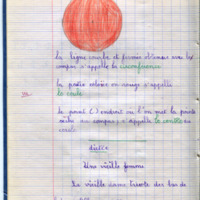 La ligne courbe et fermée obtenue avec le
compas s'appelle la circonférence
la partie coloriée en rouge s'appelle
le cercle
le point (.) endroit où l'on met la pointe
sèche du compas, s'appelle le centre du
cercle
dictée
Une vieille femme
La vieille tricote des bas de